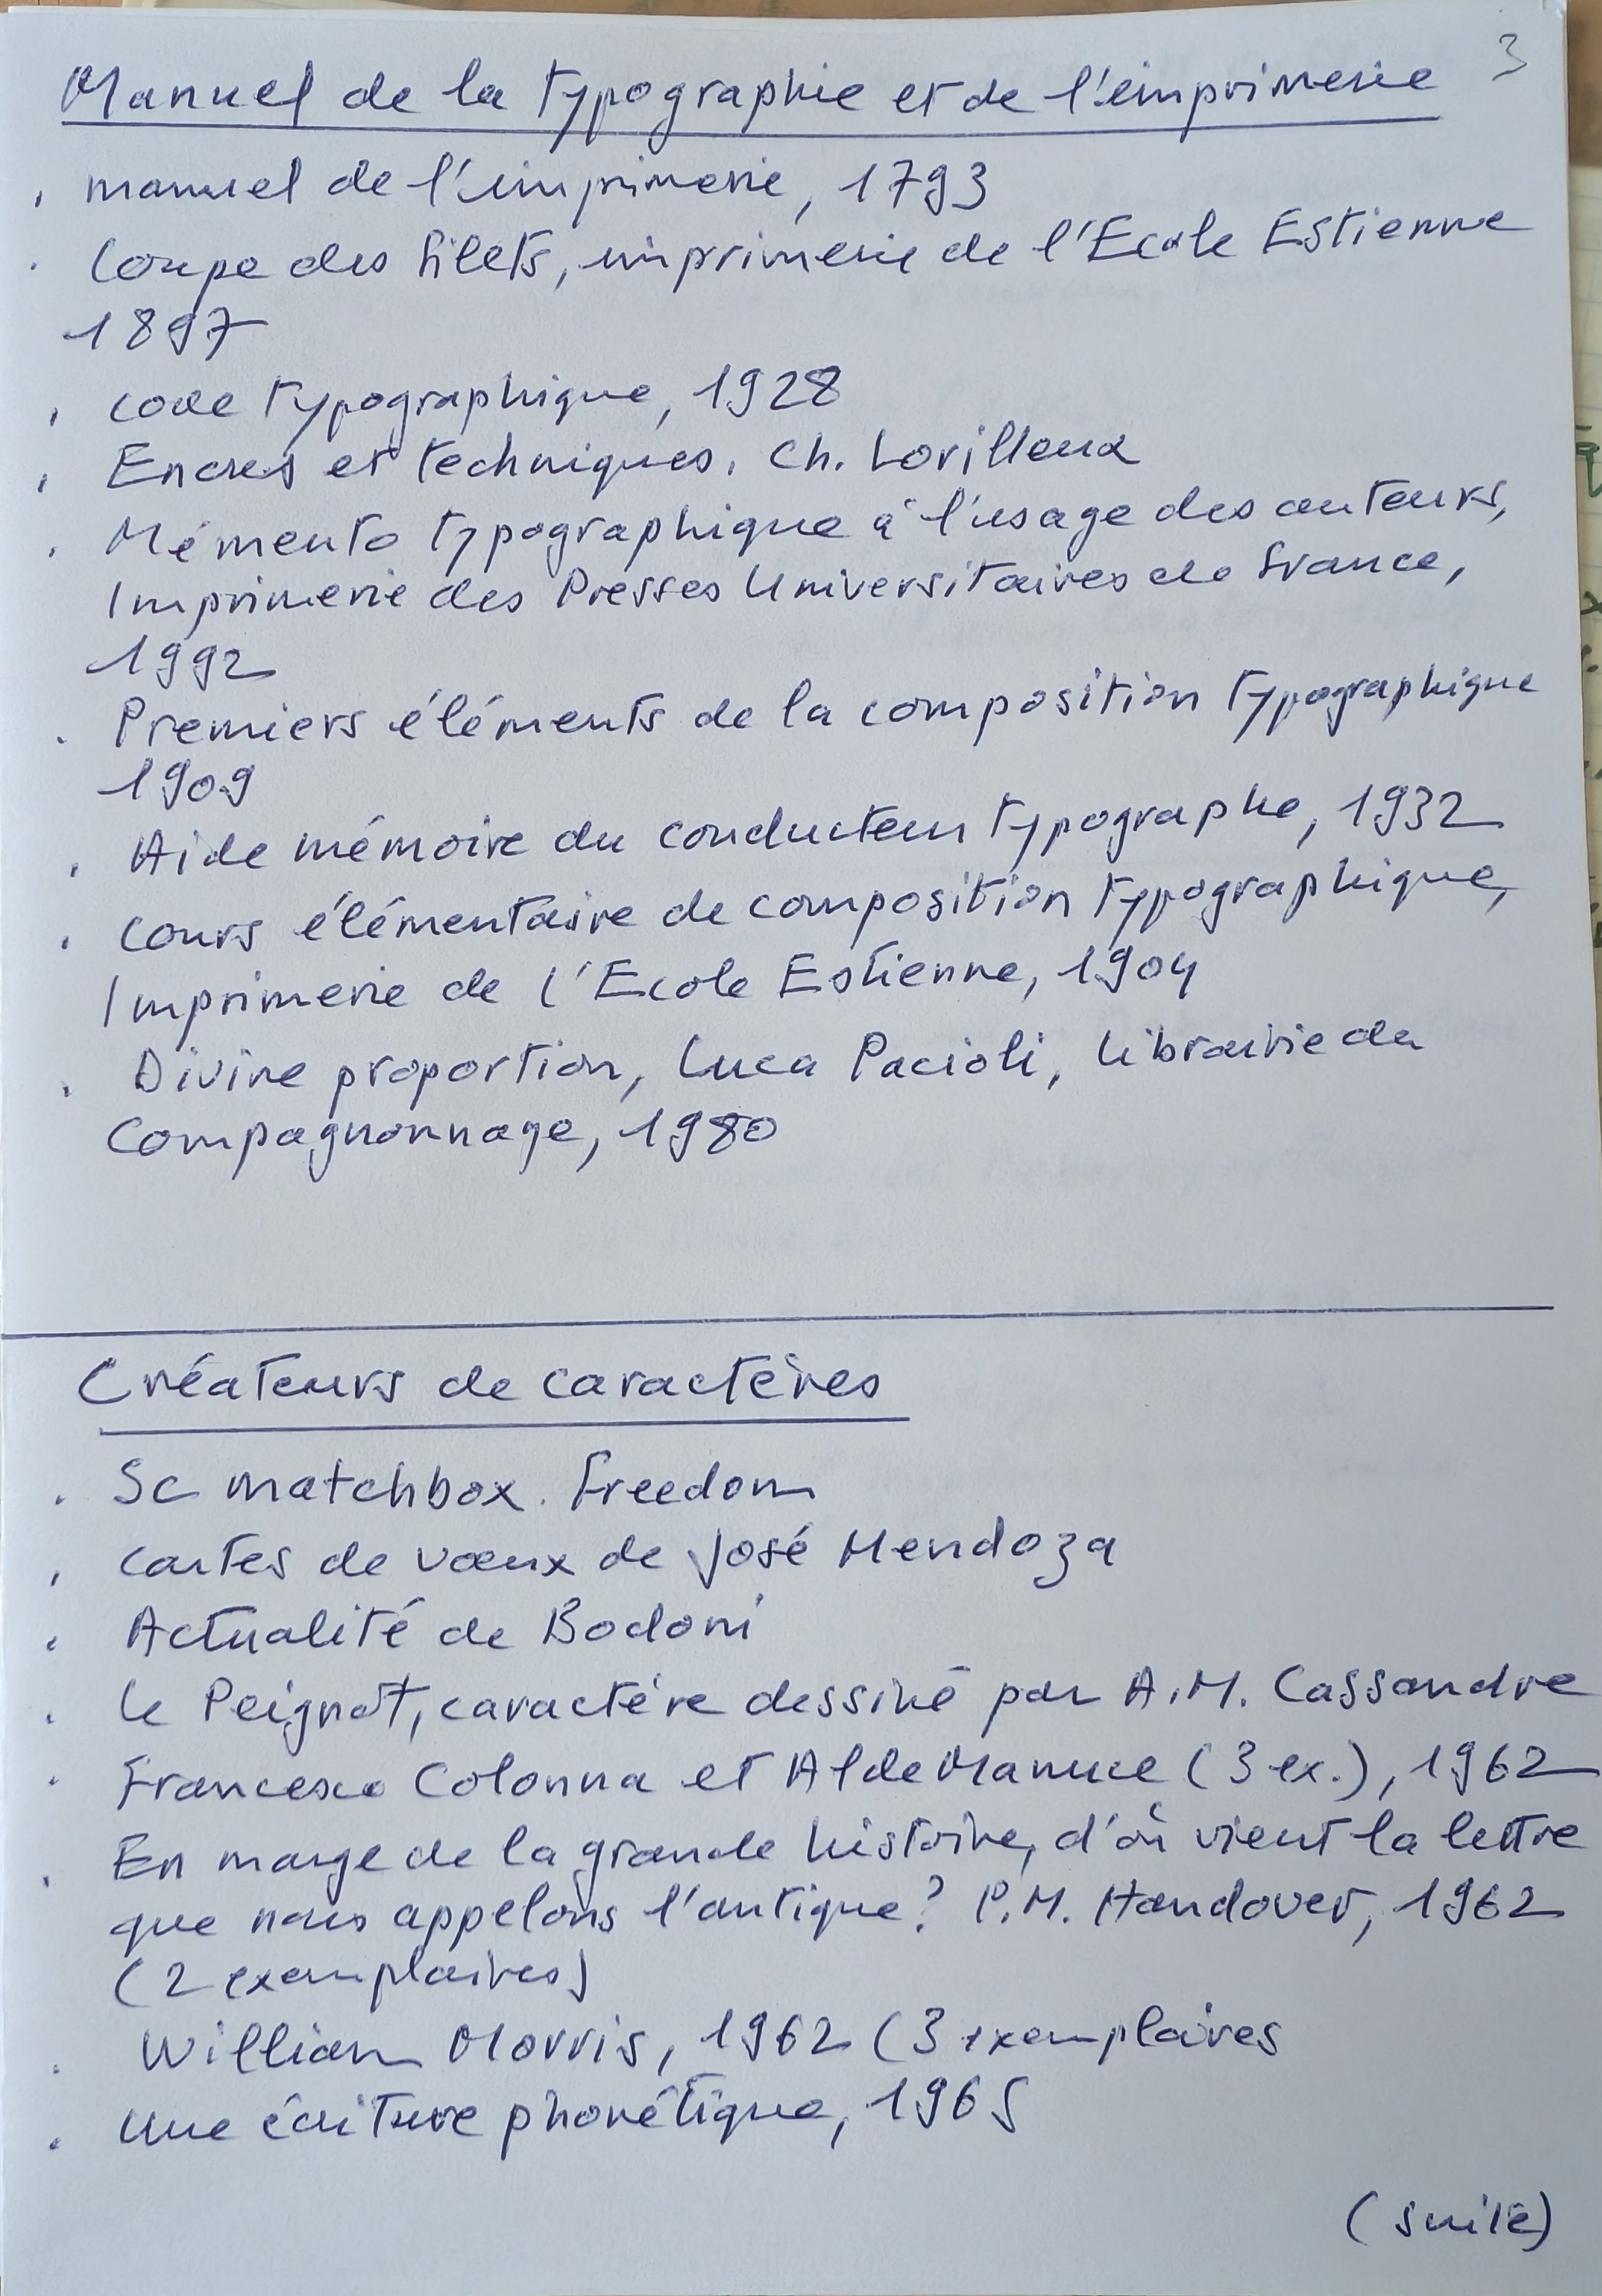 3
Manuel de la typographie et de l'imprimerie
. manuel de l'imprimerie, 1793
. Coupe des filets, imprimerie de l'Ecole Estienne
1897
. code typographique, 1928
. Encres et techniques. Ch. Lorilleux
. Mémento typographique à l'usage des auteurs,
Imprimerie des Presses Universitaires de France,
1992
. Premiers éléments de la composition typographique
1909
. Aide mémoire du conducteur typographe, 1932
. Cours élémentaire de composition typographique,
Imprimerie de l'Ecole Estienne, 1904
. Divine proportion, Luca Pacioli, librairie du
Compagnonnage, 1980
Créateurs de caractères
. Sc matchbox. Freedom
. cartes de vœux de José Mendoza
. Actualité de Bodoni
. le Peignot, caractère dessiné par A.M. Cassandre
. Francesco Colonna et Alde Manuce (3 ex.), 1962
. En marge de la grande histoire, d'où vient la lettre
que nous appelons l'antique? P.M. Handover, 1962
(2 exemplaires)
. William Morris, 1962 (3 exemplaires
. une écriture phonétique, 1965
(suite)